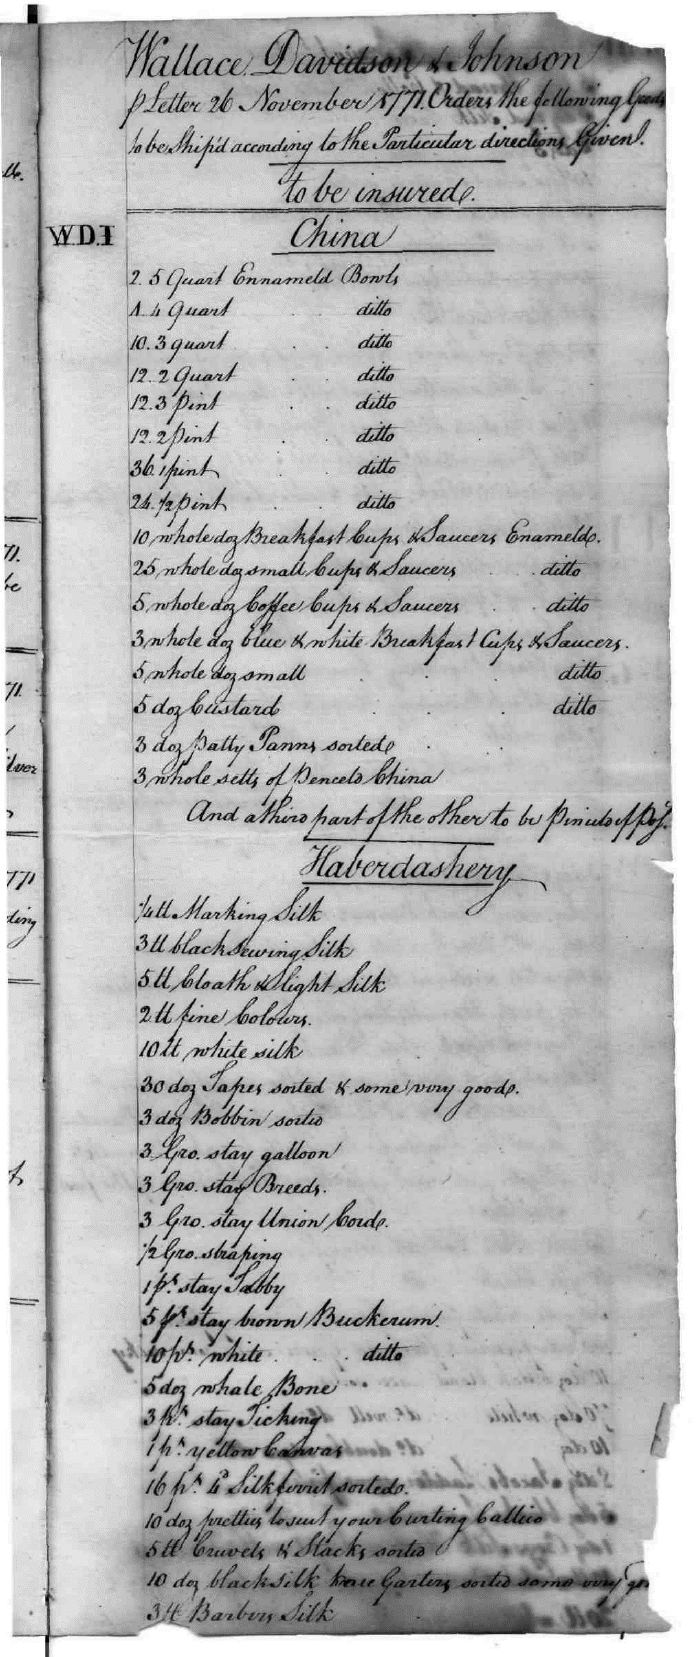 Wallace Davidson & Johnson
p Letter 26 November 1771 Orders the following Goods
to be Ship'd according to the Particular directions Given.
to be insured.
W.D.I
China
2. 5 Quart Ennameld Bowls
4 Quart ditto
10. 3 quart ditto
12. 2 Quart ditto
12. 3 pint ditto
12. 2 pint ditto
36. 1 pint ditto
24. 1/2 pint ditto
10 whole doz Breakfast Cups & Saucers Enameld.
25 whole doz small Cups & Saucers ditto
5 whole doz Coffee Cups & Saucers ditto
3 whole doz blue & white Breakfast Cups & Saucers.
5 whole doz small ditto
5 doz Custard ditto
3 doz patty Panns sorted
3 whole setts of penceld China
And a third part of the other to be
Haberdashery
1/4 lb Marking Silk
3 lb black sewing Silk
5 lb Cloath & light Silk
2 lb fine Colours.
10 lb white silk
30 doz Tapes sorted & some very good.
3 doz Bobbin sorted
3 Gro. stay galloon
3 Gro. stay Breeds.
3 Gro. stay Union Cord.
1/2 Gro. straping
1 ps. stay Tabby
5 ps. stay brown Buckerum.
10 ps. white ditto
5 doz whale Bone
3 ps. stay Ticking
1 ps. yellow Canvas
16 ps. 4d Silk ferrit sorted.
10 doz pretties to suit your Curting Callico
5 lb Cruvels & Slacks sorted
10 doz black silk knee Garters sorted some very
3 lb Barbers Silk